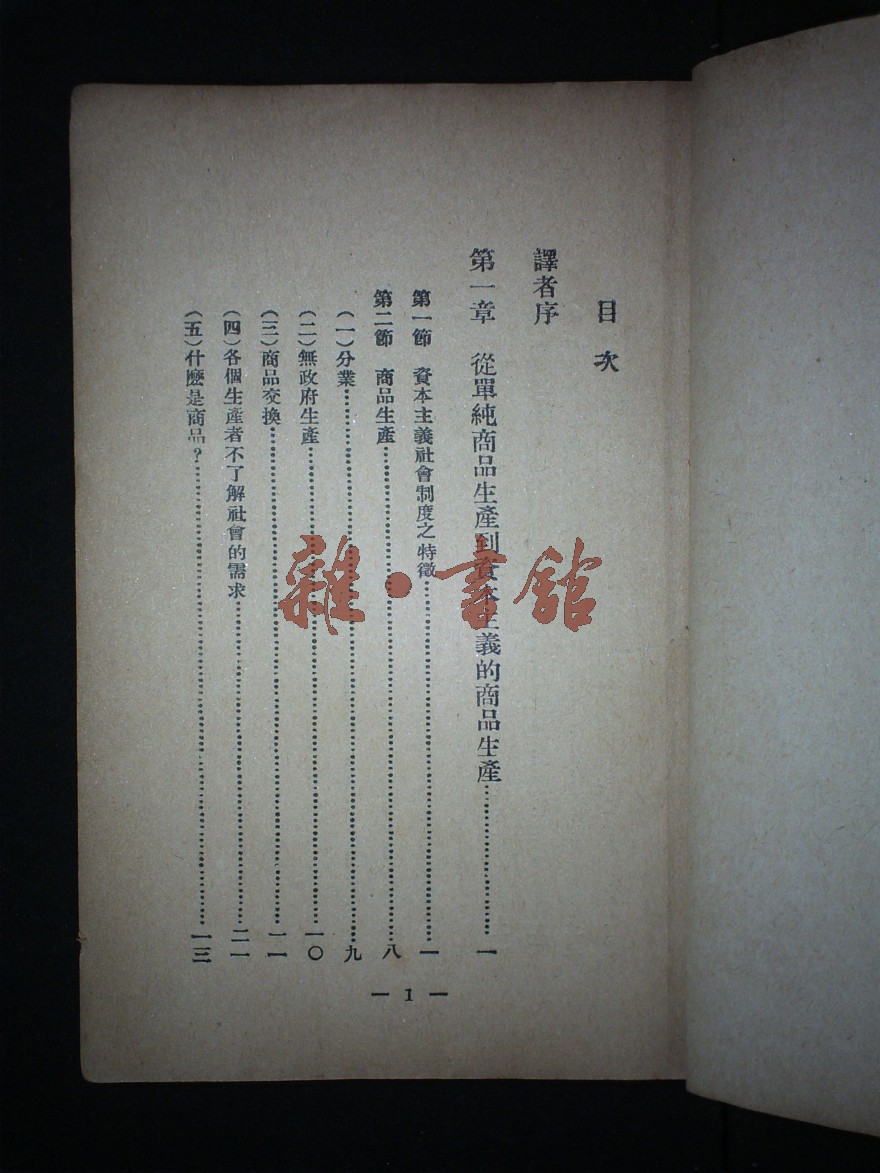 目次
譯者序
第一章 從單純商品生產到資本主義的商品生產……一
第一節 資本主義社會制度之特徵……一
第二節 商品生產……八
（一）分業……九
（二）無政府生產……一〇
（三）商品交換……一一
（四）各個生產者不了解社會的需求……二一
（五）什麼是商品？……一三
— 1 —
雜·書館